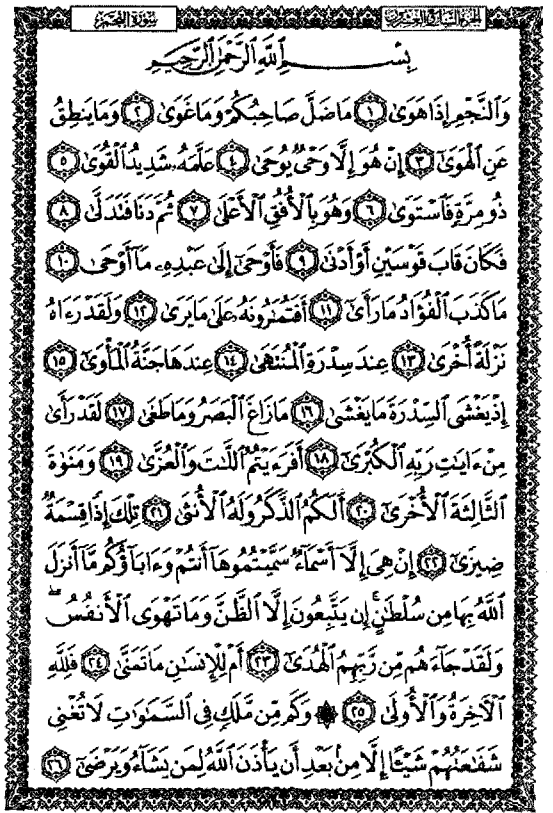 سورة النجم
الجزء السابع والعشرون
بِسْمِ اللَّهِ الرَّحْمَٰنِ الرَّحِيمِ
وَالنَّجْمِ إِذَا هَوَىٰ ١ مَا ضَلَّ صَاحِبُكُمْ وَمَا غَوَىٰ ٢ وَمَا يَنطِقُ
عَنِ الْهَوَىٰ ٣ إِنْ هُوَ إِلَّا وَحْيٌ يُوحَىٰ ٤ عَلَّمَهُ شَدِيدُ الْقُوَىٰ ٥
ذُو مِرَّةٍ فَاسْتَوَىٰ ٦ وَهُوَ بِالْأُفُقِ الْأَعْلَىٰ ٧ ثُمَّ دَنَا فَتَدَلَّىٰ ٨
فَكَانَ قَابَ قَوْسَيْنِ أَوْ أَدْنَىٰ ٩ فَأَوْحَىٰ إِلَىٰ عَبْدِهِ مَا أَوْحَىٰ ١٠
مَا كَذَبَ الْفُؤَادُ مَا رَأَىٰ ١١ أَفَتُمَارُونَهُ عَلَىٰ مَا يَرَىٰ ١٢ وَلَقَدْ رَءَاهُ
نَزْلَةً أُخْرَىٰ ١٣ عِندَ سِدْرَةِ الْمُنتَهَىٰ ١٤ عِندَهَا جَنَّةُ الْمَأْوَىٰ ١٥
إِذْ يَغْشَى السِّدْرَةَ مَا يَغْشَىٰ ١٦ مَا زَاغَ الْبَصَرُ وَمَا طَغَىٰ ١٧ لَقَدْ رَأَىٰ
مِنْ ءَايَٰتِ رَبِّهِ الْكُبْرَىٰ ١٨ أَفَرَءَيْتُمُ اللَّٰتَ وَالْعُزَّىٰ ١٩ وَمَنَوٰةَ
الثَّالِثَةَ الْأُخْرَىٰ ٢٠ أَلَكُمُ الذَّكَرُ وَلَهُ الْأُنثَىٰ ٢١ تِلْكَ إِذًا قِسْمَةٌ
ضِيزَىٰ ٢٢ إِنْ هِيَ إِلَّا أَسْمَاءٌ سَمَّيْتُمُوهَا أَنتُمْ وَءَابَاؤُكُم مَّا أَنزَلَ
اللَّهُ بِهَا مِن سُلْطَٰنٍ ۚ إِن يَتَّبِعُونَ إِلَّا الظَّنَّ وَمَا تَهْوَى الْأَنفُسُ ۖ
وَلَقَدْ جَاءَهُم مِّن رَّبِّهِمُ الْهُدَىٰ ٢٣ أَمْ لِلْإِنسَٰنِ مَا تَمَنَّىٰ ٢٤ فَلِلَّهِ
الْآخِرَةُ وَالْأُولَىٰ ٢٥ ۞ وَكَم مِّن مَّلَكٍ فِي السَّمَٰوَٰتِ لَا تُغْنِي
شَفَٰعَتُهُمْ شَيْـًٔا إِلَّا مِن بَعْدِ أَن يَأْذَنَ اللَّهُ لِمَن يَشَاءُ وَيَرْضَىٰ ٢٦